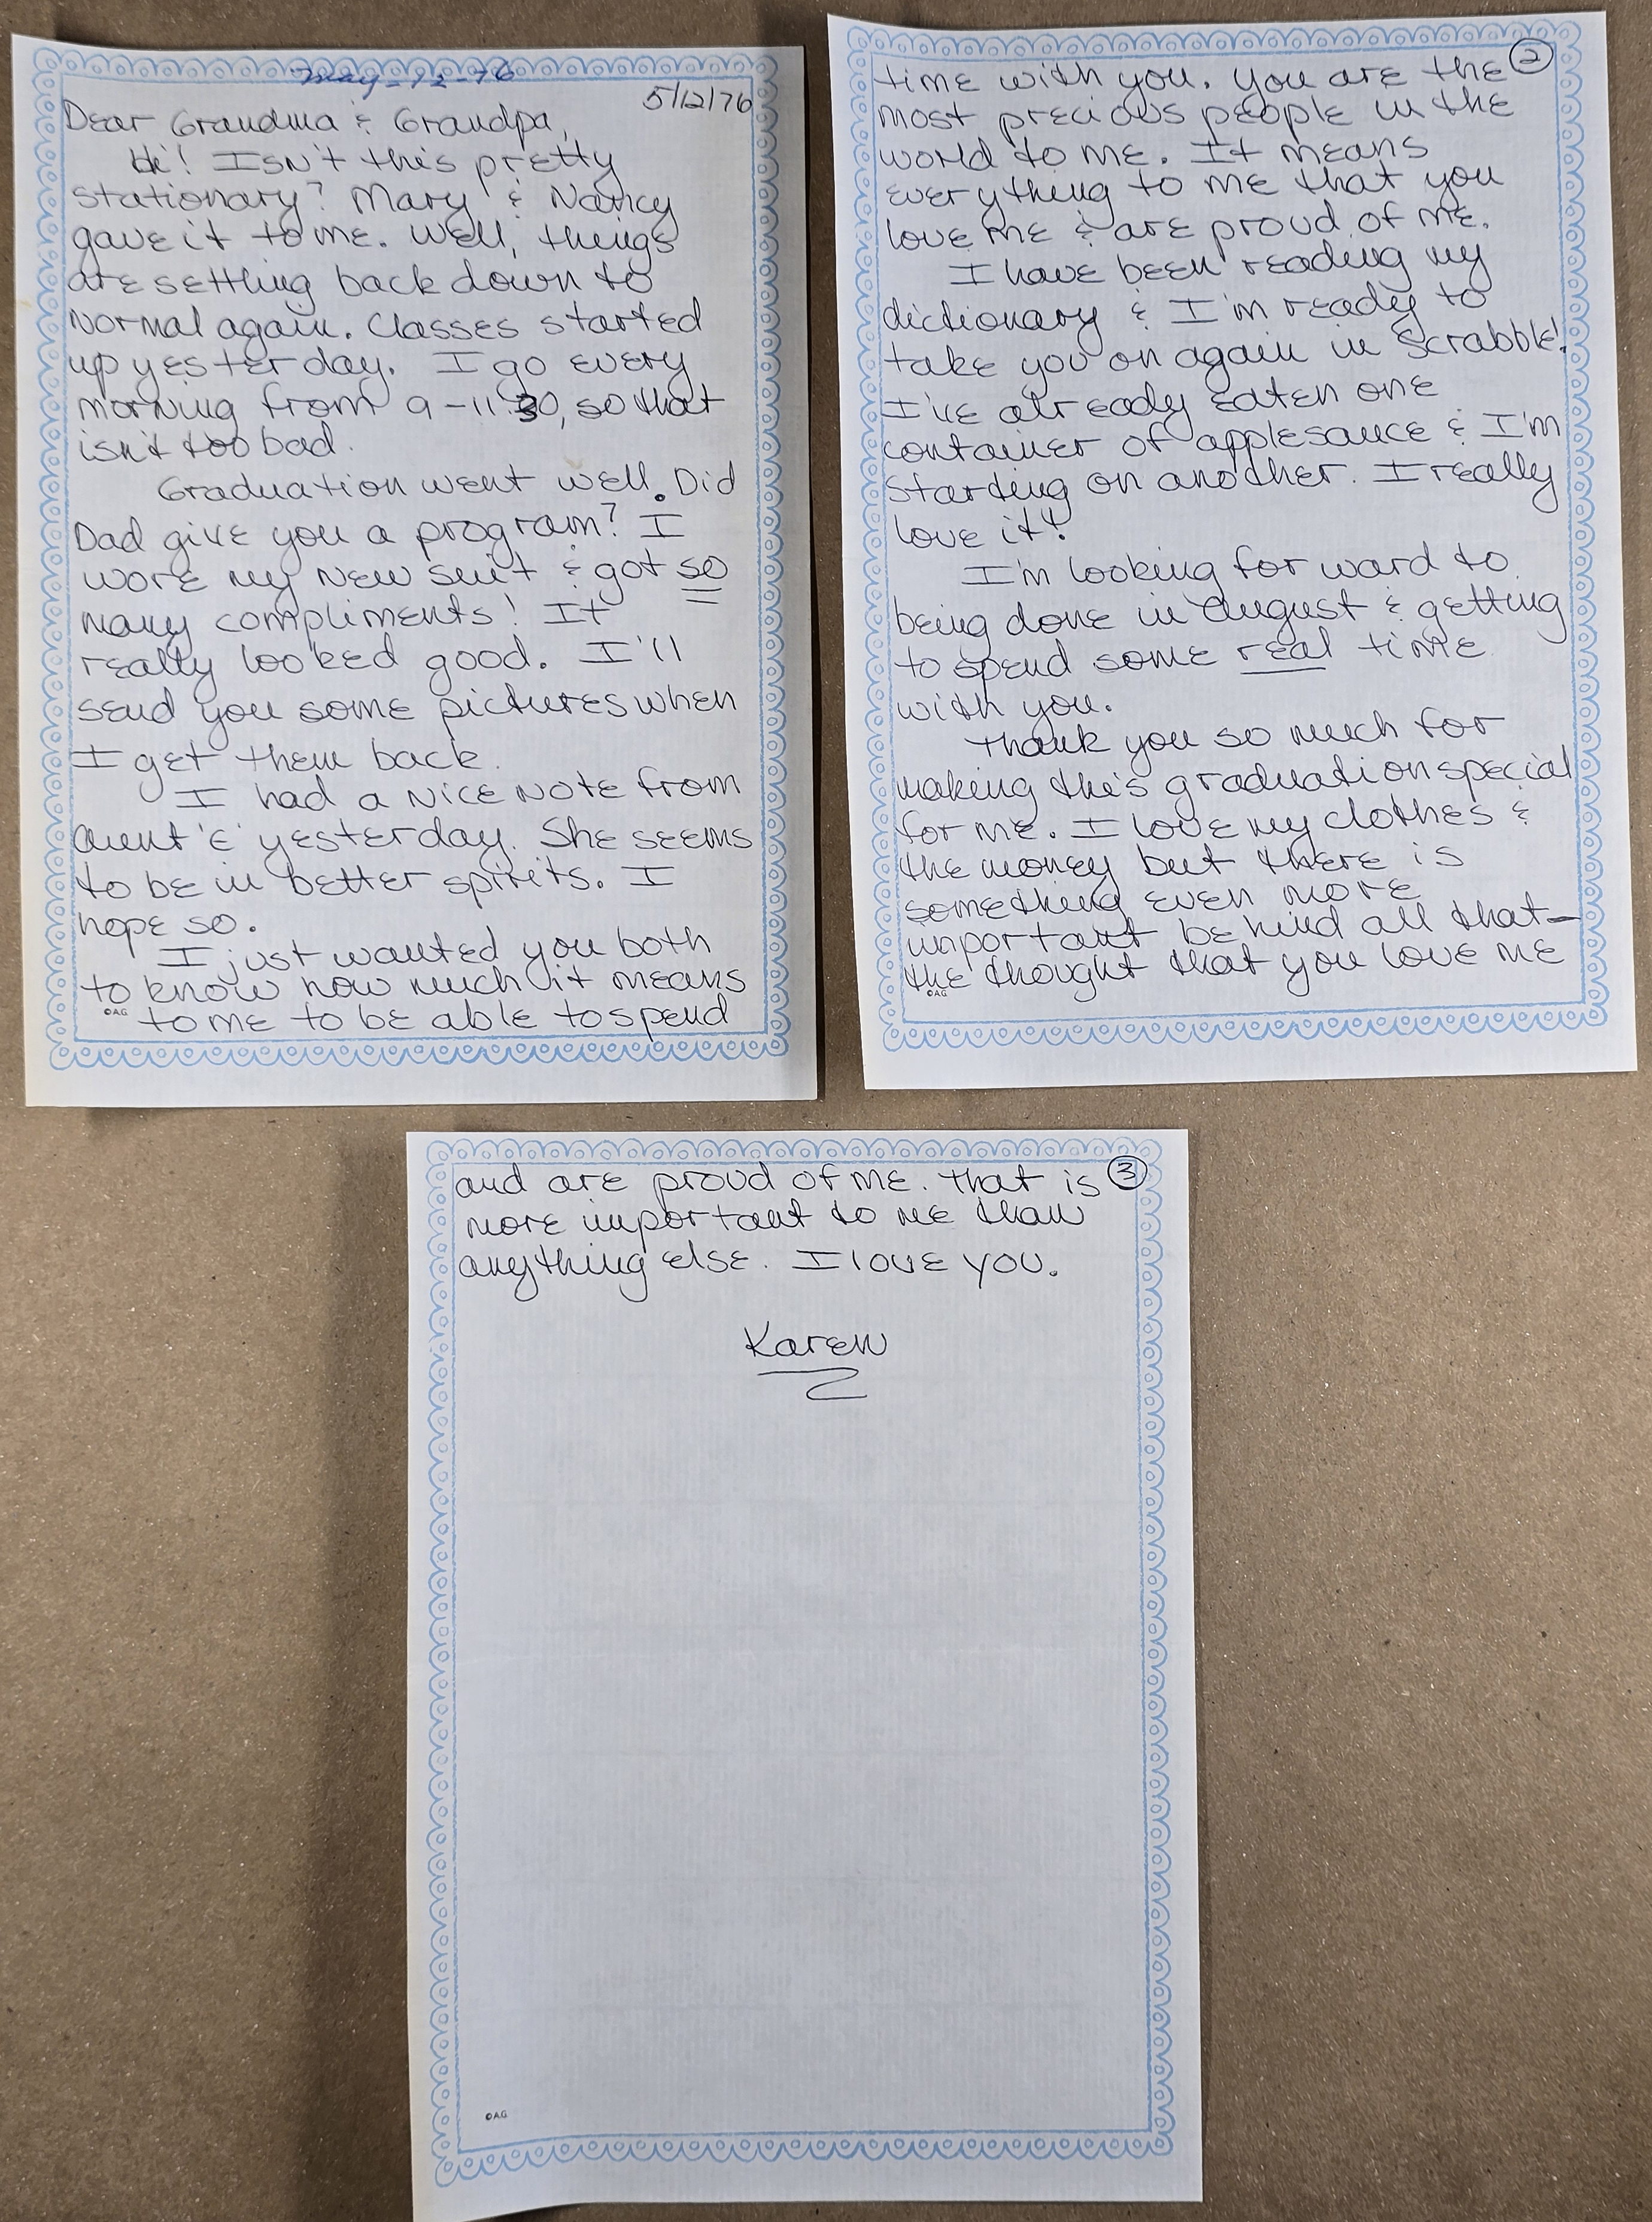 May-12-76
5/12/76
Dear Grandma & Grandpa,
Hi! Isn't this pretty
stationary? Mary & Nancy
gave it to me. Well, things
are settling back down to
normal again. Classes started
up yesterday. I go every
morning from 9-11:30, so that
isn't too bad.
Graduation went well. Did
Dad give you a program? I
wore my new suit & got so
many compliments! It
really looked good. I'll
send you some pictures when
I get them back.
I had a nice note from
Aunt 'E' yesterday. She seems
to be in better spirits. I
hope so.
I just wanted you both
to know how much it means
to me to be able to spend
©A.G.
2
time with you. You are the
most precious people in the
world to me. It means
everything to me that you
love me & are proud of me.
I have been reading my
dictionary & I'm ready to
take you on again in Scrabble!
I've already eaten one
container of applesauce & I'm
starting on another. I really
love it!
I'm looking forward to
being done in August & getting
to spend some real time
with you.
Thank you so much for
making this graduation special
for me. I love my clothes &
the money but there is
something even more
important behind all that—
the thought that you love me
©A.G.
3
and are proud of me. That is
more important to me than
anything else. I love you.
Karen
©A.G.